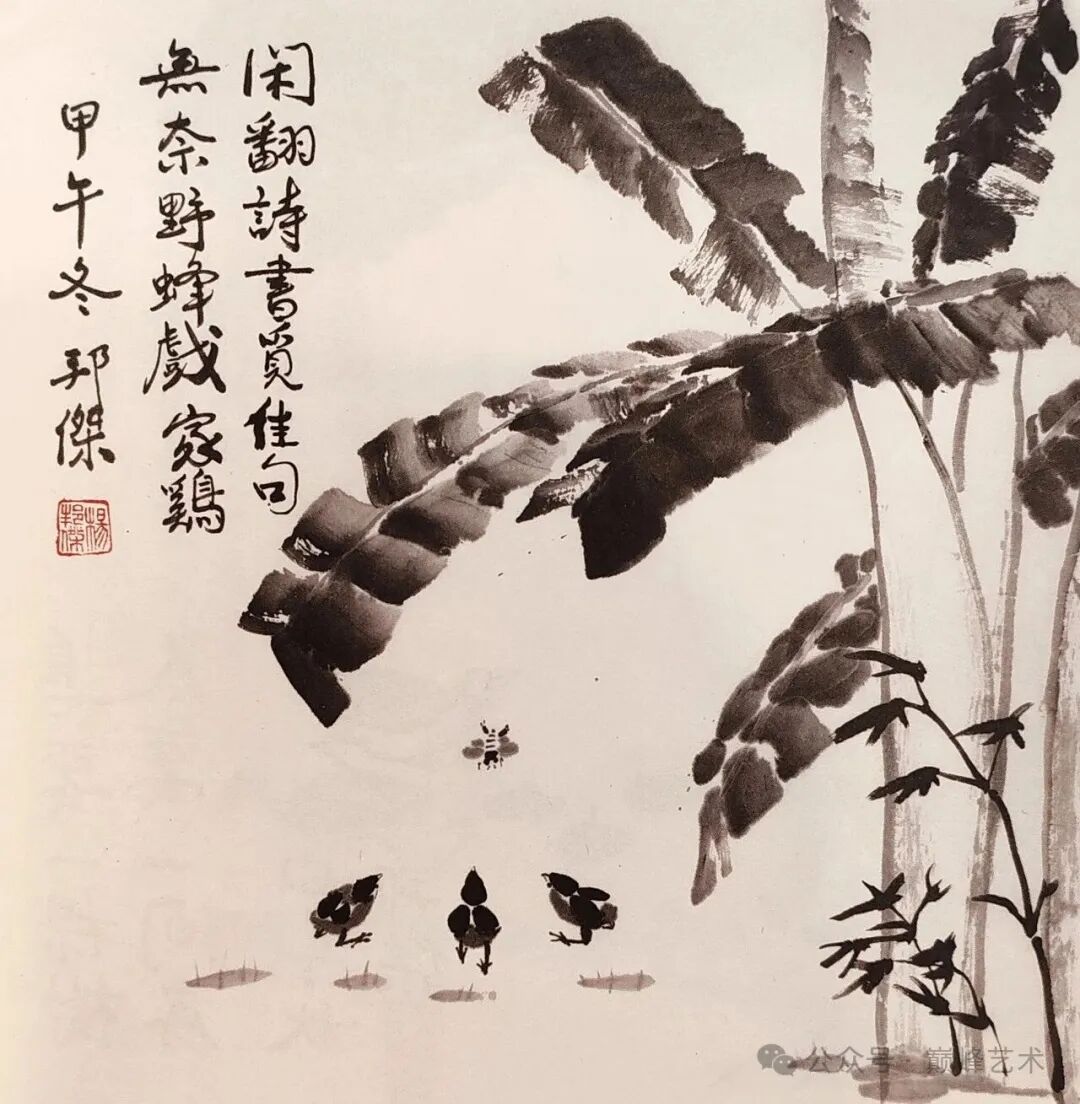 閑翻詩書覓佳句
無奈野蜂戲家鷄
甲午冬 邦傑
楊邦傑
公众号 巅峰艺术